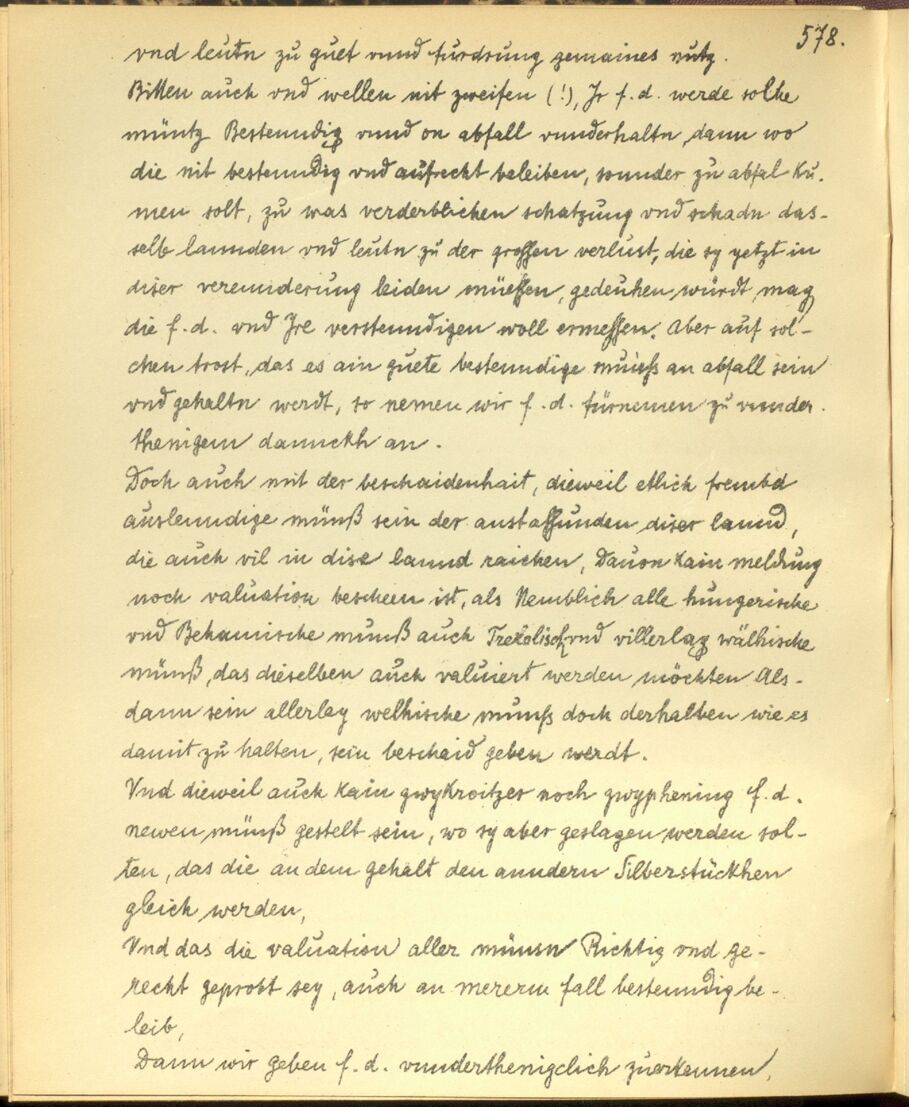 578.
vnd leutn zu guet vnnd furdrung gemaines nutz.
Bitten auch vnd wellen nit zweifen (!), Jr f. d. werde solhe
müntz Bestenndig vnnd on abfall vnnderhaltn, dann wo
die nit bestenndig vnd aufrecht beleiben, sonnder zu abfal ku-
men solt, zu was verderblichen schatzung vnd schadn das-
selb lannden vnd leutn zu der grossen verlust, die sy yetzt in
diser verennderung leiden müessen, gedeuhen würdt, mag
die f. d. vnd Jre verstenndigen woll ermessen. Aber auf sol-
chen trost, das es ain guete bestenndige münss an abfall sein
vnd gehaltn werdt, so nemen wir f. d. fürnemen zu vnnder-
thenigem dannckh an.
Doch auch mit der beschaidenhait, dieweil etlich frembd
auslenndige münß sein der anstossunden diser lannd,
die auch vil in dise lannd raichen, Dauon kain meldung
noch valuation bescheen ist, als Nemblich alle hungerische
vnd Behamische munß auch vnd villerlay wälhische
münß, das dieselben auch valuiert werden möchten Als-
dann sein allerlay welhische munss doch derhalben wie es
damit zu halten, sein beschaid geben werdt.
Vnd dieweil auch kain zwykroitzer noch zwyphening f. d.
newen münß gestelt sein, wo sy aber geslagen werden sol-
ten, das die an dem gehalt den anndern Silberstückhen
gleich werden,
Vnd das die valuation aller münsn Richtig vnd ge-
recht geprobt sey, auch an mererm fall bestenndig be-
leib,
Dann wir geben f. d. vnnderthenigclich zuerkannen,